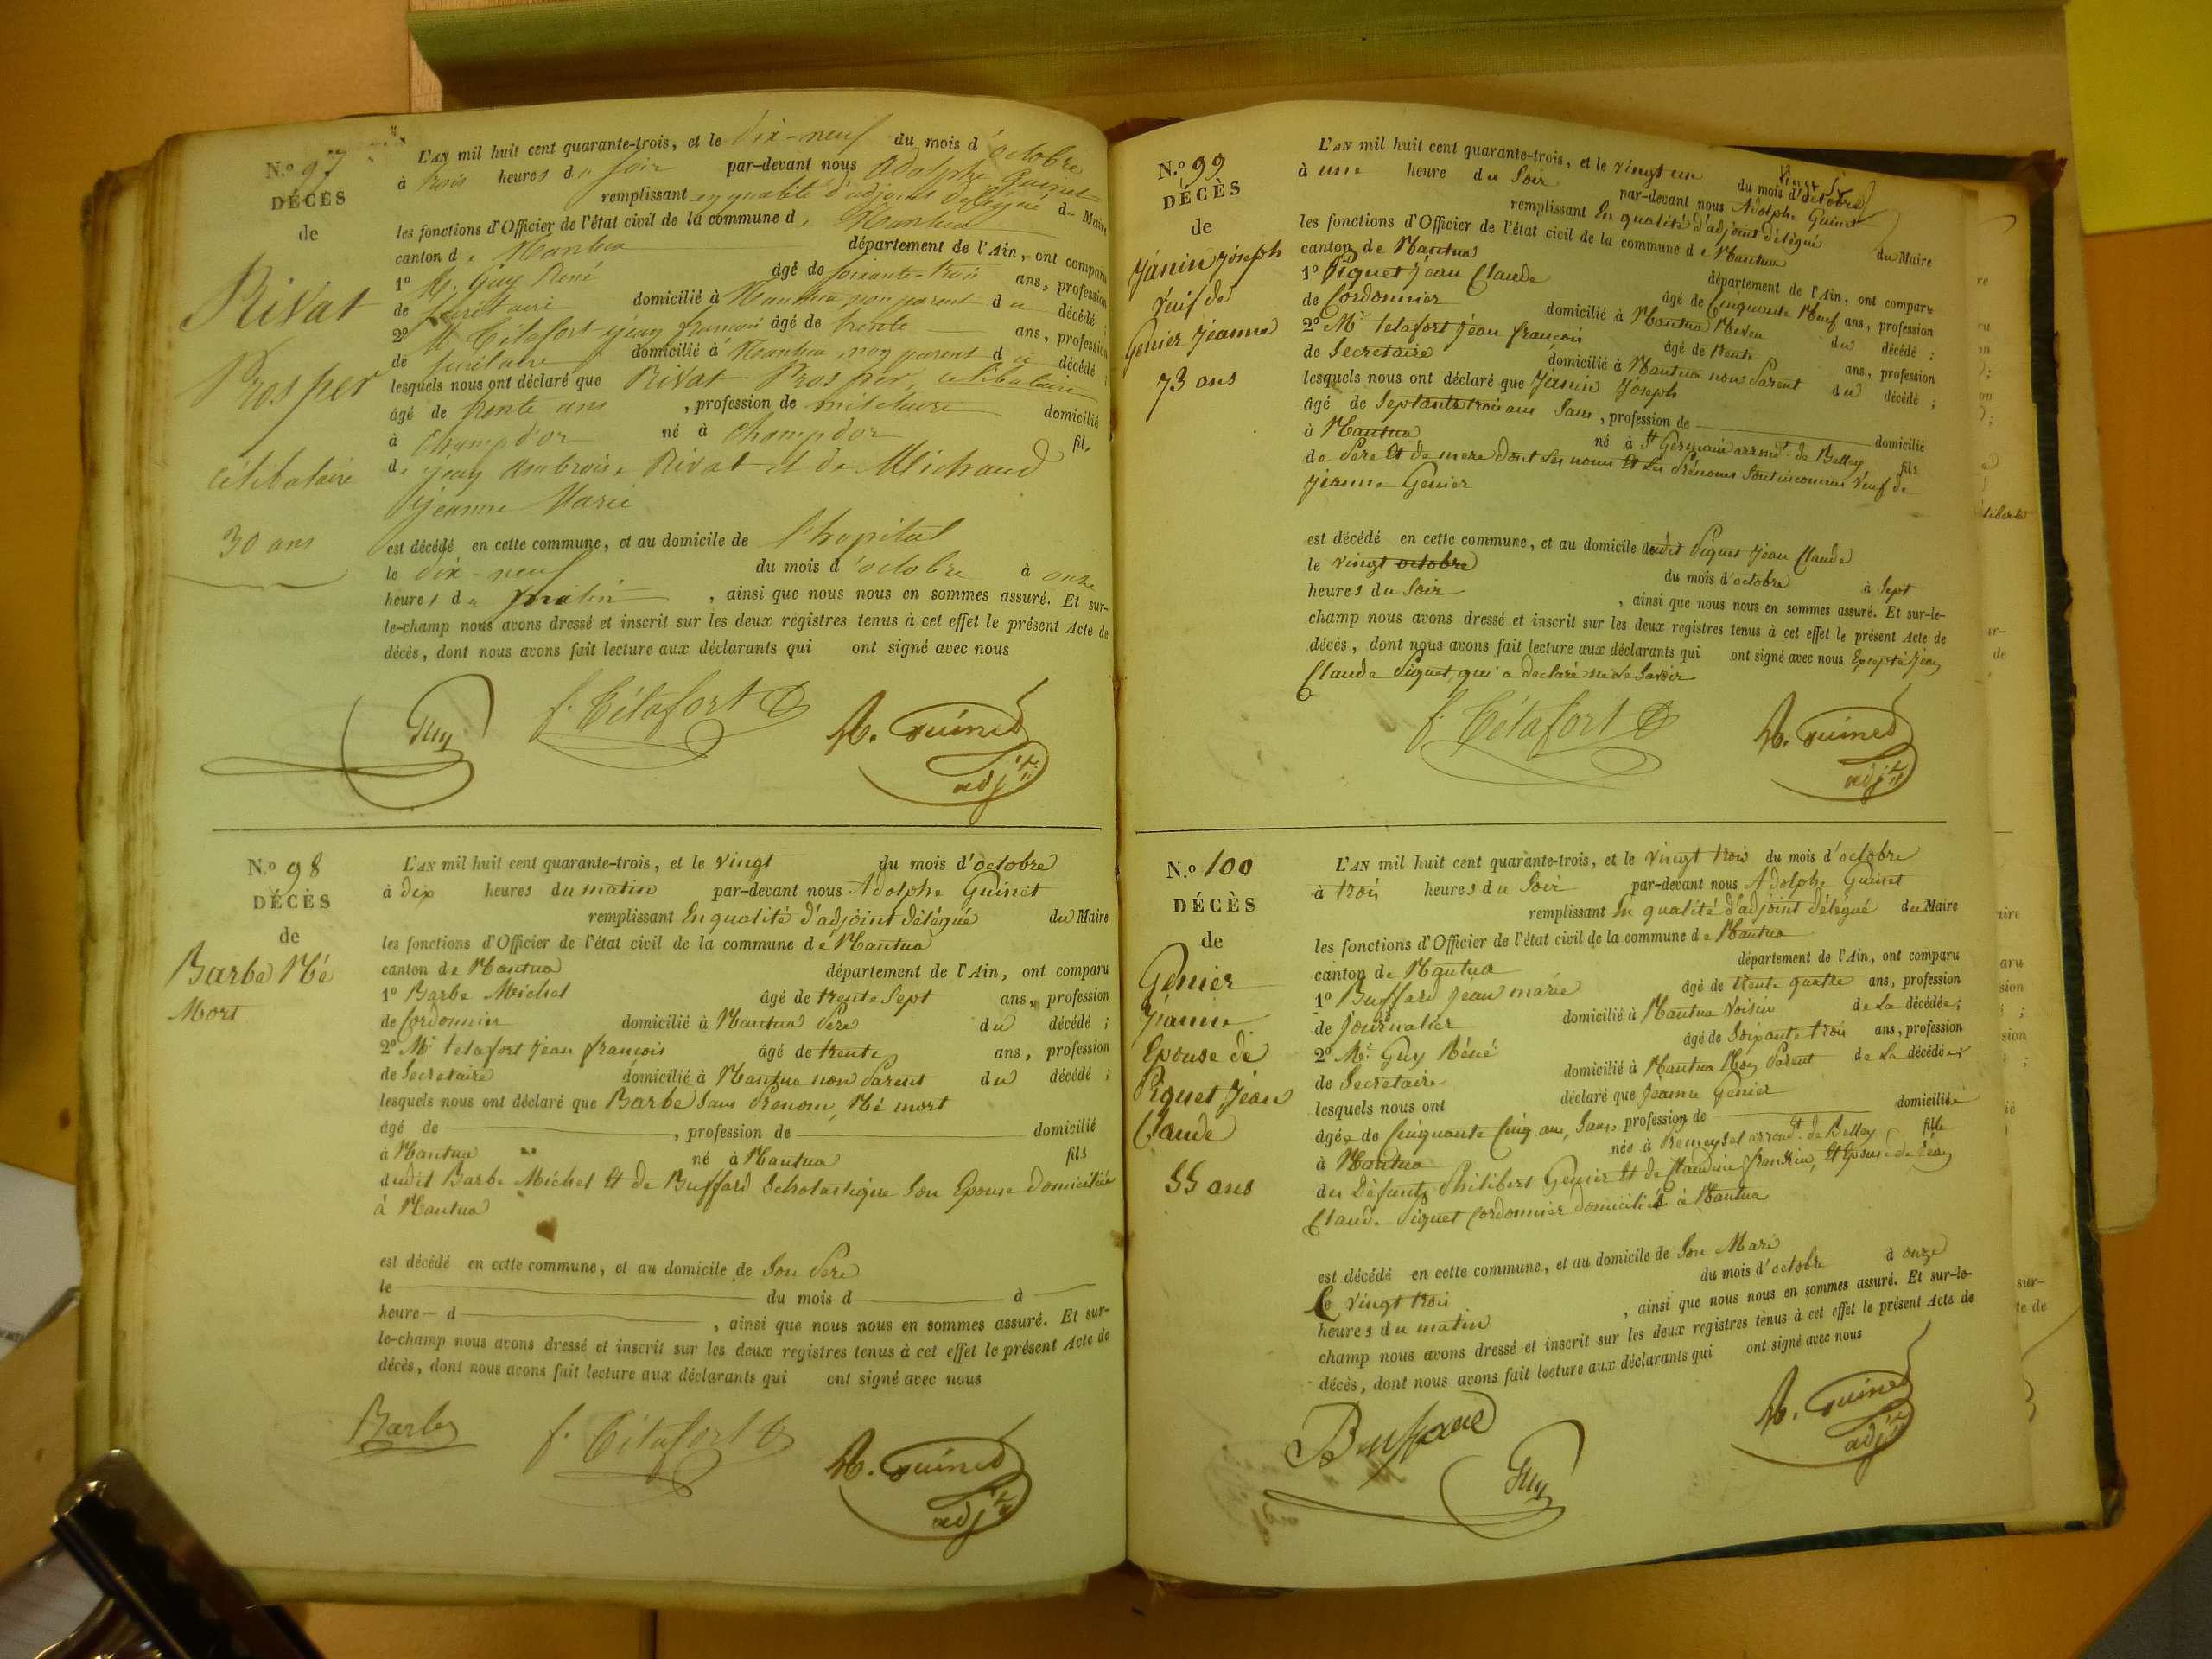 N.o 97
DÉCÈS
de
Rivat
Prosper
célibataire
30 ans
L'AN mil huit cent quarante-trois, et le dix-neuf du mois d'octobre
à trois heures du soir par-devant nous Adolphe Guinet
remplissant en qualité d'adjoint délégué du Maire
les fonctions d'Officier de l'état civil de la commune de Mantua
canton de Mantua département de l'Ain, ont comparu
1º M. Guy René âgé de soixante-trois ans, profession
de secrétaire domicilié à Mantua non parent du décédé ;
2º M. Tétafort jean françois âgé de trente ans, profession
de secrétaire domicilié à Mantua, non parent du décédé ;
lesquels nous ont déclaré que Rivat Prosper, célibataire
âgé de trente ans , profession de militaire domicilié
à Champd'or né à Champd'or fils
de jean ambroise Rivat et de Michaud
jeanne Marie
est décédé en cette commune, et au domicile de l'hopital
le dix-neuf du mois d'octobre à onze
heures du matin , ainsi que nous nous en sommes assuré. Et sur-
le-champ nous avons dressé et inscrit sur les deux registres tenus à cet effet le présent Acte de
décès, dont nous avons fait lecture aux déclarants qui ont signé avec nous
Guy f. Tétafort A. Guinet
adj.t
N.o 98
DÉCÈS
de
Barbe Né
Mort
L'AN mil huit cent quarante-trois, et le vingt du mois d'octobre
à dix heures du matin par-devant nous Adolphe Guinet
remplissant En qualité d'adjoint délégué du Maire
les fonctions d'Officier de l'état civil de la commune de Mantua
canton de Mantua département de l'Ain, ont comparu
1º Barbe Michel âgé de trente Sept ans, profession
de Cordonnier domicilié à Mantua Père du décédé ;
2º Mr tetafort jean françois âgé de trente ans, profession
de Secretaire domicilié à Mantua non Parent du décédé ;
lesquels nous ont déclaré que Barbe Sans Prenom, Né mort
âgé de , profession de domicilié
à Mantua né à Mantua fils
dudit Barbe Michel Et de Buffard Scholastique Son Epouse domiciliée
à Mantua
est décédé en cette commune, et au domicile de Son Père
le du mois d à
heure d , ainsi que nous nous en sommes assuré. Et sur-
le-champ nous avons dressé et inscrit sur les deux registres tenus à cet effet le présent Acte de
décès, dont nous avons fait lecture aux déclarants qui ont signé avec nous
Barbe f. Tétafort A. Guinet
adj.t
N.o 99
DÉCÈS
de
Janin Joseph
Veuf de
Genier Jeanne
73 ans
L'AN mil huit cent quarante-trois, et le vingt un du mois d'octobre
à une heure du Soir par-devant nous Adolphe Guinet
remplissant En qualité d'adjoint délégué du Maire
les fonctions d'Officier de l'état civil de la commune de Mantua
canton de Mantua département de l'Ain, ont comparu
1º Piquet Jean Claude âgé de Cinquante Neuf ans, profession
de Cordonnier domicilié à Mantua Neveu du décédé ;
2º Mr tetafort Jean françois âgé de trente ans, profession
de Secretaire domicilié à Mantua non Parent du décédé ;
lesquels nous ont déclaré que Janin Joseph
âgé de Septante trois ans Sans , profession de domicilié
à Mantua né à St Germain arromt. de Belley fils
de Père Et de mere dont Les noms Et Les Prénoms Sont inconnus Veuf de
Jeanne Genier
est décédé en cette commune, et au domicile dudit Piquet Jean Claude
le vingt octobre du mois d'octobre à Sept
heures du Soir , ainsi que nous nous en sommes assuré. Et sur-le-
champ nous avons dressé et inscrit sur les deux registres tenus à cet effet le présent Acte de
décès, dont nous avons fait lecture aux déclarants qui ont signé avec nous Excepté Jean
Claude Piquet, qui a declaré ne Le Savoir
f. Tétafort A. Guinet
adj.t
N.o 100
DÉCÈS
de
Genier
Jeanne
Epouse de
Piquet Jean
Claude
55 ans
L'AN mil huit cent quarante-trois, et le vingt trois du mois d'octobre
à trois heures du Soir par-devant nous Adolphe Guinet
remplissant En qualité d'adjoint délégué du Maire
les fonctions d'Officier de l'état civil de la commune de Mantua
canton de Mantua département de l'Ain, ont comparu
1º Buffard Jean marie âgé de trente quatre ans, profession
de Journalier domicilié à Mantua Voisin de La décédée ;
2º Mr. Guy Réné âgé de Soixante trois ans, profession
de Secretaire domicilié à Mantua Non Parent de La décédée ;
lesquels nous ont déclaré que Jeanne Genier
âgée de Cinquante Cinq ans, Sans, profession de domiciliée
à Mantua née à arromt. de Belley fille
des Défunts Philibert Genier Et de Claudine, Et Epouse de Jean
Claude Piquet Cordonnier domiciliés à Mantua
est décédé en cette commune, et au domicile de Son Mari
le vingt trois du mois d'octobre à onze
heures du matin , ainsi que nous nous en sommes assuré. Et sur-le-
champ nous avons dressé et inscrit sur les deux registres tenus à cet effet le présent Acte de
décès, dont nous avons fait lecture aux déclarants qui ont signé avec nous
Buffard Guy A. Guinet
adj.t